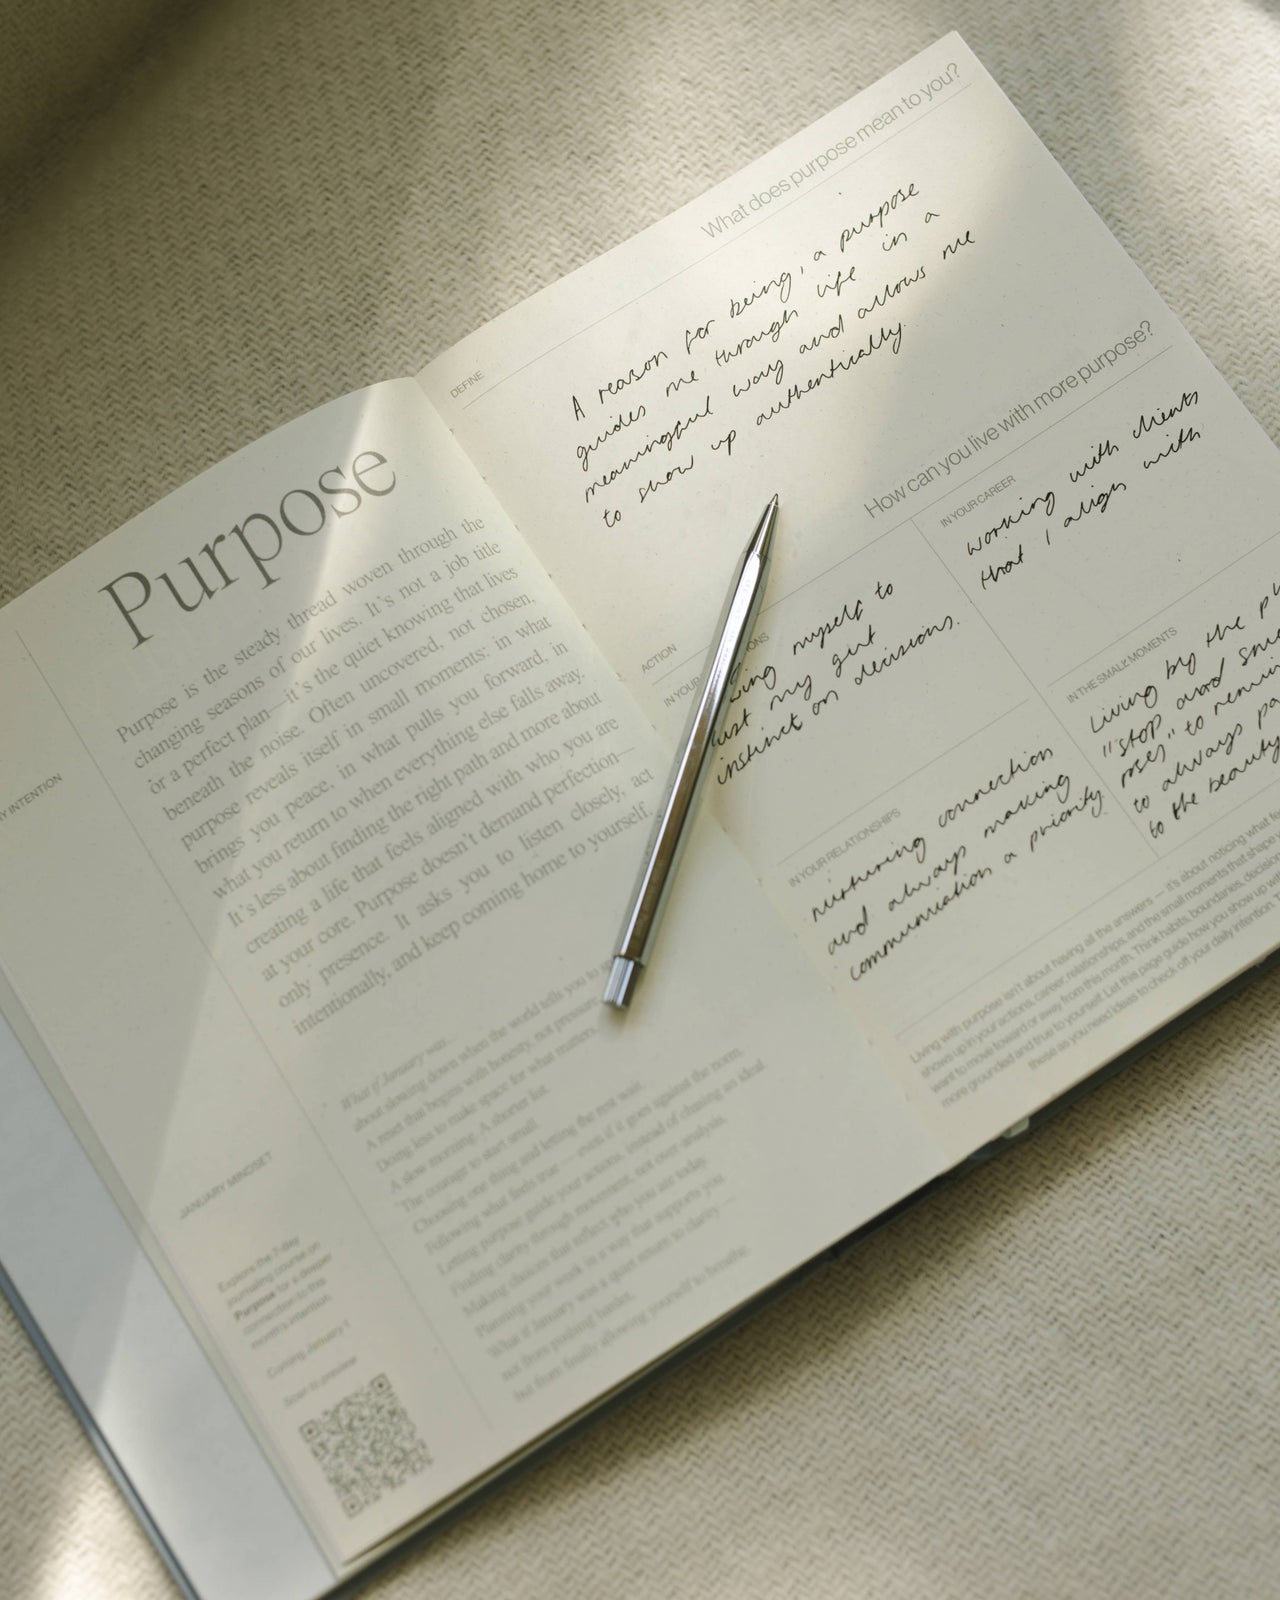 Purpose
Purpose is the steady thread woven through the
changing seasons of our lives. It's not a job title
or a perfect plan—it's the quiet knowing that lives
beneath the noise. Often uncovered, not chosen,
purpose reveals itself in small moments: in what
brings you peace, in what pulls you forward, in
what you return to when everything else falls away.
It's less about finding the right path and more about
creating a life that feels aligned with who you are
at your core. Purpose doesn't demand perfection—
only presence. It asks you to listen closely, act
intentionally, and keep coming home to yourself.
INTENTION
JANUARY MINDSET
What if January was...
about slowing down when the world tells you to
A reset that begins with honesty, not pressure
Doing less to make space for what matters.
A slow morning. A shorter list.
The courage to start small.
Choosing one thing and letting the rest wait.
Following what feels true—even if it goes against the norm.
Letting purpose guide your actions, instead of chasing an ideal
Finding clarity through movement, not over analysis.
Making choices that reflect who you are today.
Planning your work in a way that supports you.
What if January was a quiet return to clarity—
not from pushing harder,
but from finally allowing yourself to breathe.
Explore the 7-day
journaling course on
Purpose for a deeper
connection to this
month's intention.
Coming January 1
Scan to preview
What does purpose mean to you?
DEFINE
A reason for being, a purpose
guides me through life in a
meaningful way and allows me
to show up authentically.
How can you live with more purpose?
ACTION
IN YOUR
myself to
my gut
instinct on decisions.
IN YOUR CAREER
working with clients
that I align with
IN YOUR RELATIONSHIPS
nurturing connection
and always making
communication a priority
IN THE SMALL MOMENTS
Living by the
"stop and
roses" to
to always
to the beauty
Living with purpose isn't about having all the answers — it's about noticing what
show up in your actions, career, relationships, and the small moments that shape
want to move toward or away from this month. Think habits, boundaries,
more grounded and true to yourself. Let this page guide how you show up with
these as you need ideas to check off your daily intention.